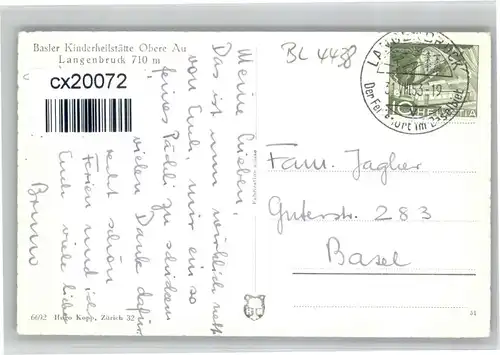 Basler Kinderheilstätte Obere Au
Langenbruck 710 m
cx20072
BL 4438
LANGENBRUCK
VIII.53-19
Der Ferienort im Baselbiet
10
HELVETIA
Meine Lieben,
Das ist nun wirklich nett
von Euch, mir ein so
feines Päckli zu schicken
vielen Dank dafür
recht schöne
Ferien und ich
Euch viele liebe
Bruno
Fam. Jagher
Güterstr. 283
Basel
6692 Hugo Kopp, Zürich 32
51